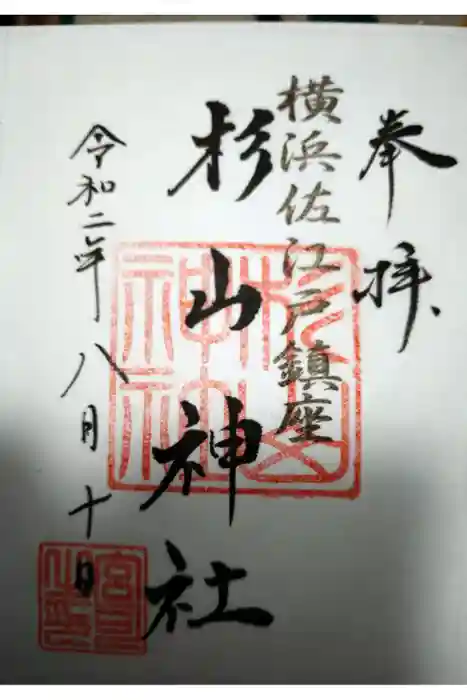 奉拝
横浜佐江戸鎮座
杉山神社
令和二年八月十日
杉山神社